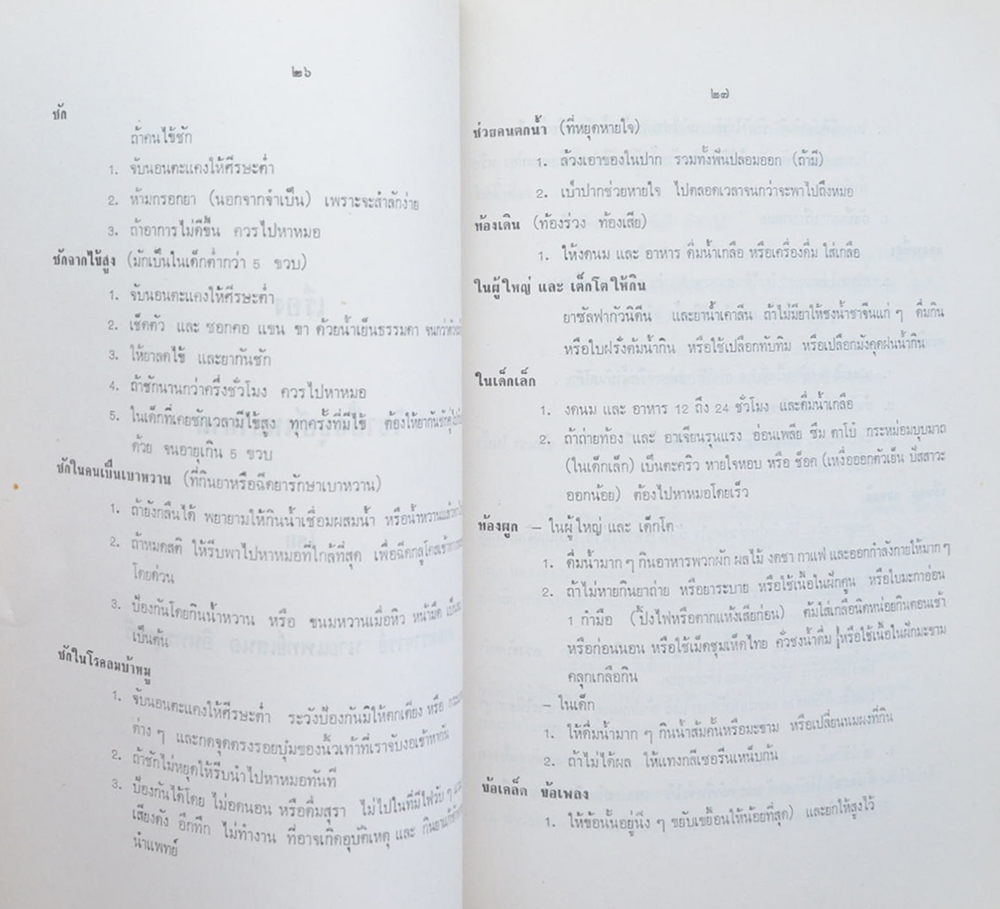 ๒๖
ชัก
ถ้าคนไข้ชัก
1. จับนอนตะแคงให้ศีรษะต่ำ
2. ห้ามกรอกยา (นอกจากจำเป็น) เพราะจะสำลักง่าย
3. ถ้าอาการไม่ดีขึ้น ควรไปหาหมอ
ชักจากไข้สูง (มักเป็นในเด็กต่ำกว่า 5 ขวบ)
1. จับนอนตะแคงให้ศีรษะต่ำ
2. เช็ดตัว และ ซอกคอ แขน ขา ด้วยน้ำเย็นธรรมดา จนกว่า
3. ให้ยาลดไข้ และยากันชัก
4. ถ้าชักนานกว่าครึ่งชั่วโมง ควรไปหาหมอ
5. ในเด็กที่เคยชักเวลามีไข้สูง ทุกครั้งที่มีไข้ ต้องให้ยากันชัก
ด้วย จนอายุเกิน 5 ขวบ
ชักในคนเป็นเบาหวาน (ที่กินยาหรือฉีดยารักษาเบาหวาน)
1. ถ้ายังกลืนได้ พยายามให้กินน้ำเชื่อมผสมน้ำ หรือน้ำหวาน
2. ถ้าหมดสติ ให้รีบพาไปหาหมอที่ใกล้ที่สุด เพื่อฉีดกลูโคส
โดยด่วน
3. ป้องกันโดยกินน้ำหวาน หรือ ขนมหวานเมื่อหิว หน้ามืด
เป็นต้น
ชักในโรคลมบ้าหมู
1. จับนอนตะแคงให้ศีรษะต่ำ ระวังป้องกันมิให้ตกเตียง หรือ
ต่าง ๆ และกดจุดตรงรอยบุ๋มของนิ้วเท้าที่เราจับงอเข้าหากัน
2. ถ้าชักไม่หยุดให้รีบนำไปหาหมอทันที
3. ป้องกันได้โดย ไม่อดนอน หรือดื่มสุรา ไม่ไปในที่มีไฟวับ ๆ
เสียงดัง อึกทึก ไม่ทำงาน ที่อาจเกิดอุบัติเหตุ และ กินยา
นำแพทย์
๒๗
ช่วยคนตกน้ำ (ที่หยุดหายใจ)
1. ล้วงเอาของในปาก รวมทั้งฟันปลอมออก (ถ้ามี)
2. เป่าปากช่วยหายใจ ไปตลอดเวลาจนกว่าจะพาไปถึงหมอ
ท้องเดิน (ท้องร่วง ท้องเสีย)
1. ให้งดนม และ อาหาร ดื่มน้ำเกลือ หรือเครื่องดื่ม ใส่เกลือ
ในผู้ใหญ่ และ เด็กโตให้กิน
ยาซัลฟากัวนิดีน และยาน้ำเคาลีน ถ้าไม่มียาให้ชงน้ำชาจีนแก่ ๆ ดื่มกิน
หรือใบฝรั่งต้มน้ำกิน หรือใช้เปลือกทับทิม หรือเปลือกมังคุดฝนน้ำกิน
ในเด็กเล็ก
1. งดนม และ อาหาร 12 ถึง 24 ชั่วโมง และดื่มน้ำเกลือ
2. ถ้าถ่ายท้อง และ อาเจียนรุนแรง อ่อนเพลีย ซึม ตาโบ๋ กระหม่อมบุบมาก
(ในเด็กเล็ก) เป็นตะคริว หายใจหอบ หรือ ช็อค (เหงื่ออกตัวเย็น ปัสสาวะ
ออกน้อย) ต้องไปหาหมอโดยเร็ว
ท้องผูก – ในผู้ใหญ่ และ เด็กโต
1. ดื่มน้ำมาก ๆ กินอาหารพวกผัก ผลไม้ งดชา กาแฟ และออกกำลังกายให้มาก ๆ
2. ถ้าไม่หายกินยาถ่าย หรือยาระบาย หรือใช้เนื้อในฝักคูน หรือใบมะกาอ่อน
1 กำมือ (ปิ้งไฟหรือตากแห้งเสียก่อน) ต้มใส่เกลือนิดหน่อยกินตอนเช้า
หรือก่อนนอน หรือใช้เม็ดชุมเห็ดไทย คั่วชงน้ำดื่ม หรือใช้เนื้อในฝักมะขาม
คลุกเกลือกิน
– ในเด็ก
1. ให้ดื่มน้ำมาก ๆ กินน้ำส้มคั้นหรือมะขาม หรือเปลี่ยนนมผงที่กิน
2. ถ้าไม่ได้ผล ให้แทงกลีเซอรีนเหน็บก้น
ข้อเคล็ด ข้อเพลง
1. ให้ข้อนั้นอยู่นิ่ง ๆ ขยับเขยื้อนให้น้อยที่สุด) และยกให้สูงไว้